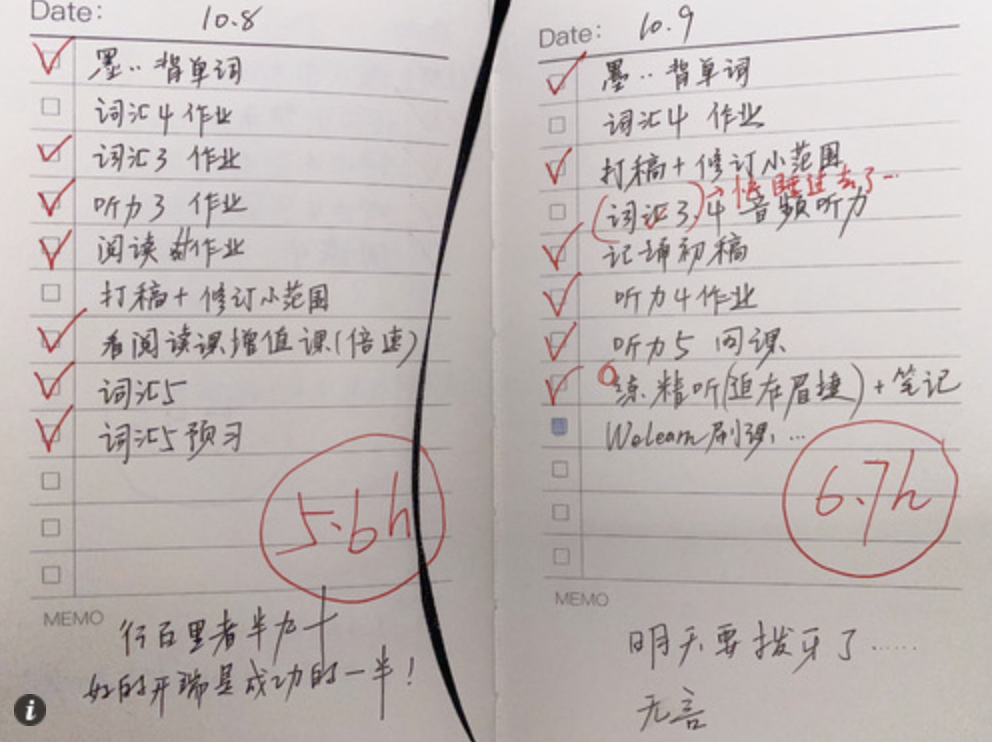 Date: 10.8
墨..背单词
词汇4 作业
词汇3 作业
听力3 作业
阅读 作业
打稿+修订小范围
看阅读课增值课(倍速)
词汇5
词汇5预习
5.6h
MEMO
行百里者半九十
好的开端是成功的一半!
Date: 10.9
墨..背单词
词汇4 作业
打稿+修订小范围
→ 睡过去了...
(词汇3)、4 音频听力
记诵初稿
听力4作业
听力5 网课
练精听(迫在眉捷)+笔记
Welearn刷课,...
6.7h
MEMO
明天要拨牙了......
无言